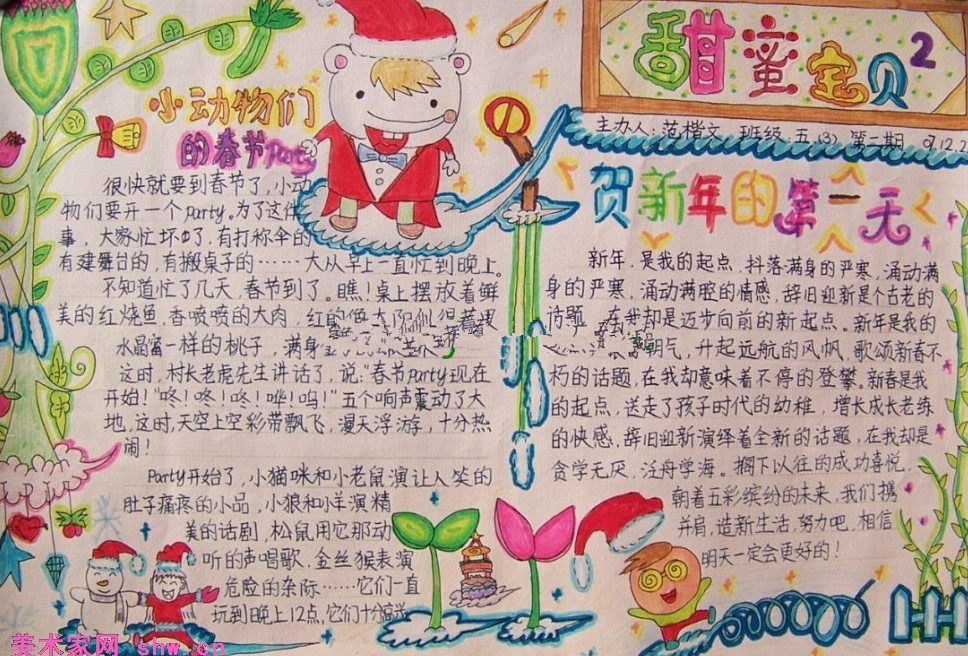 甜蜜宝贝2
主办人:范楷文 班级:五(3) 第二期 07.12.2
小动物们
的春节Party
很快就要到春节了,小动
物们要开一个party。为了这件
事,大家忙坏了,有打称伞的
有建舞台的,有搬桌子的……大从早上一直忙到晚上。
不知道忙了几天,春节到了。瞧!桌上摆放着鲜
美的红烧鱼,香喷喷的大肉,红的
水晶富一样的桃子,满身
这时,村长老虎先生讲话了,说:"春节party现在
开始!"咚!咚!咚!咝!呜!"五个响声震动了大
地,这时,天空上空彩带飘飞,漫天浮游,十分热
闹!
Party开始了,小猫咪和小老鼠演让人笑的
肚子痛疼的小品,小狼和小羊演精
美的话剧,松鼠用它那动
听的声唱歌,金丝猴表演
危险的杂际……它们一直
玩到晚上12点,它们十分高兴
贺新年的第一天
新年,是我的起点,抖落满身的严寒,涌动满
身的严寒,涌动满腔的情感,辞旧迎新是个古老的
话题,在我却是迈步向前的新起点。新年是我的
明气,升起远航的风帆,歌颂新春不
朽的话题,在我却意味着不停的登攀。新春是我
的起点,送走了孩子时代的幼稚,增长成长老练
的快感,辞旧迎新演绎着全新的话题,在我却是
贪学无厌,泛舟学海。搁下以往的成功喜悦,
朝着五彩缤纷的未来,我们携
并肩,造新生活,努力吧,相信
明天一定会更好的!
美术家网 shw.cn